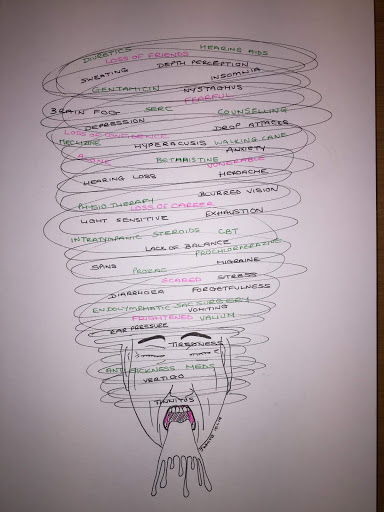 DIURETICS HEARING AIDS
LOSS OF FRIENDS
SWEATING DEPTH PERCEPTION
INSOMNIA
GENTAMICIN NYSTAGMUS
FEARFUL
BRAIN FOG SERC COUNSELLING
DEPRESSION DROP ATTACKS
LOSS OF CONFIDENCE
MECLIZINE HYPERACUSIS WALKING CANE
ANXIETY
ALONE BETAHISTINE VUNERABLE
HEARING LOSS HEADACHE
PHYSIO THERAPY BLURRED VISION
LOSS OF CAREER
LIGHT SENSITIVE EXHAUSTION
INTRATYMPANIC STEROIDS CBT
LACK OF BALANCE
PROCHLORPERAZINE
SPINS PROZAC MIGRAINE
SCARED STRESS
DIARRHOEA FORGETFULNESS
ENDOLYMPHATIC SAC SURGERY
VOMITING
FRIGHTENED VALIUM
EAR PRESSURE
TIREDNESS
ANTI SICKNESS MEDS
VERTIGO
TINNITUS